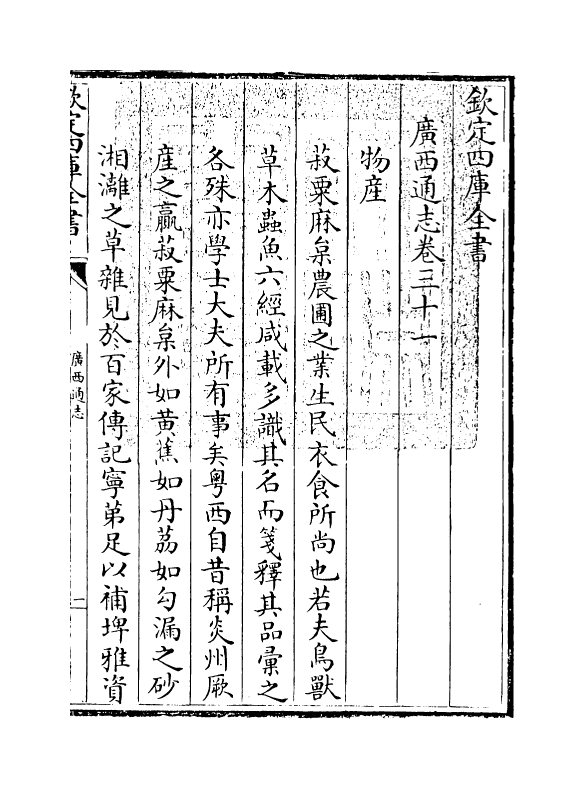 欽定四庫全書
廣西通志卷三十一
物産
菽粟麻枲農圃之業生民衣食所尚也若夫鳥獸
草木蟲魚六經咸載多識其名而箋釋其品彙之
各殊亦學士大夫所有事矣粤西自昔稱炎州厥
産之贏菽粟麻枲外如黄蕉如丹荔如勾漏之砂
湘灕之草雜見於百家傳記寧第足以補埤雅資
欽定四庫全書
廣西通志
一